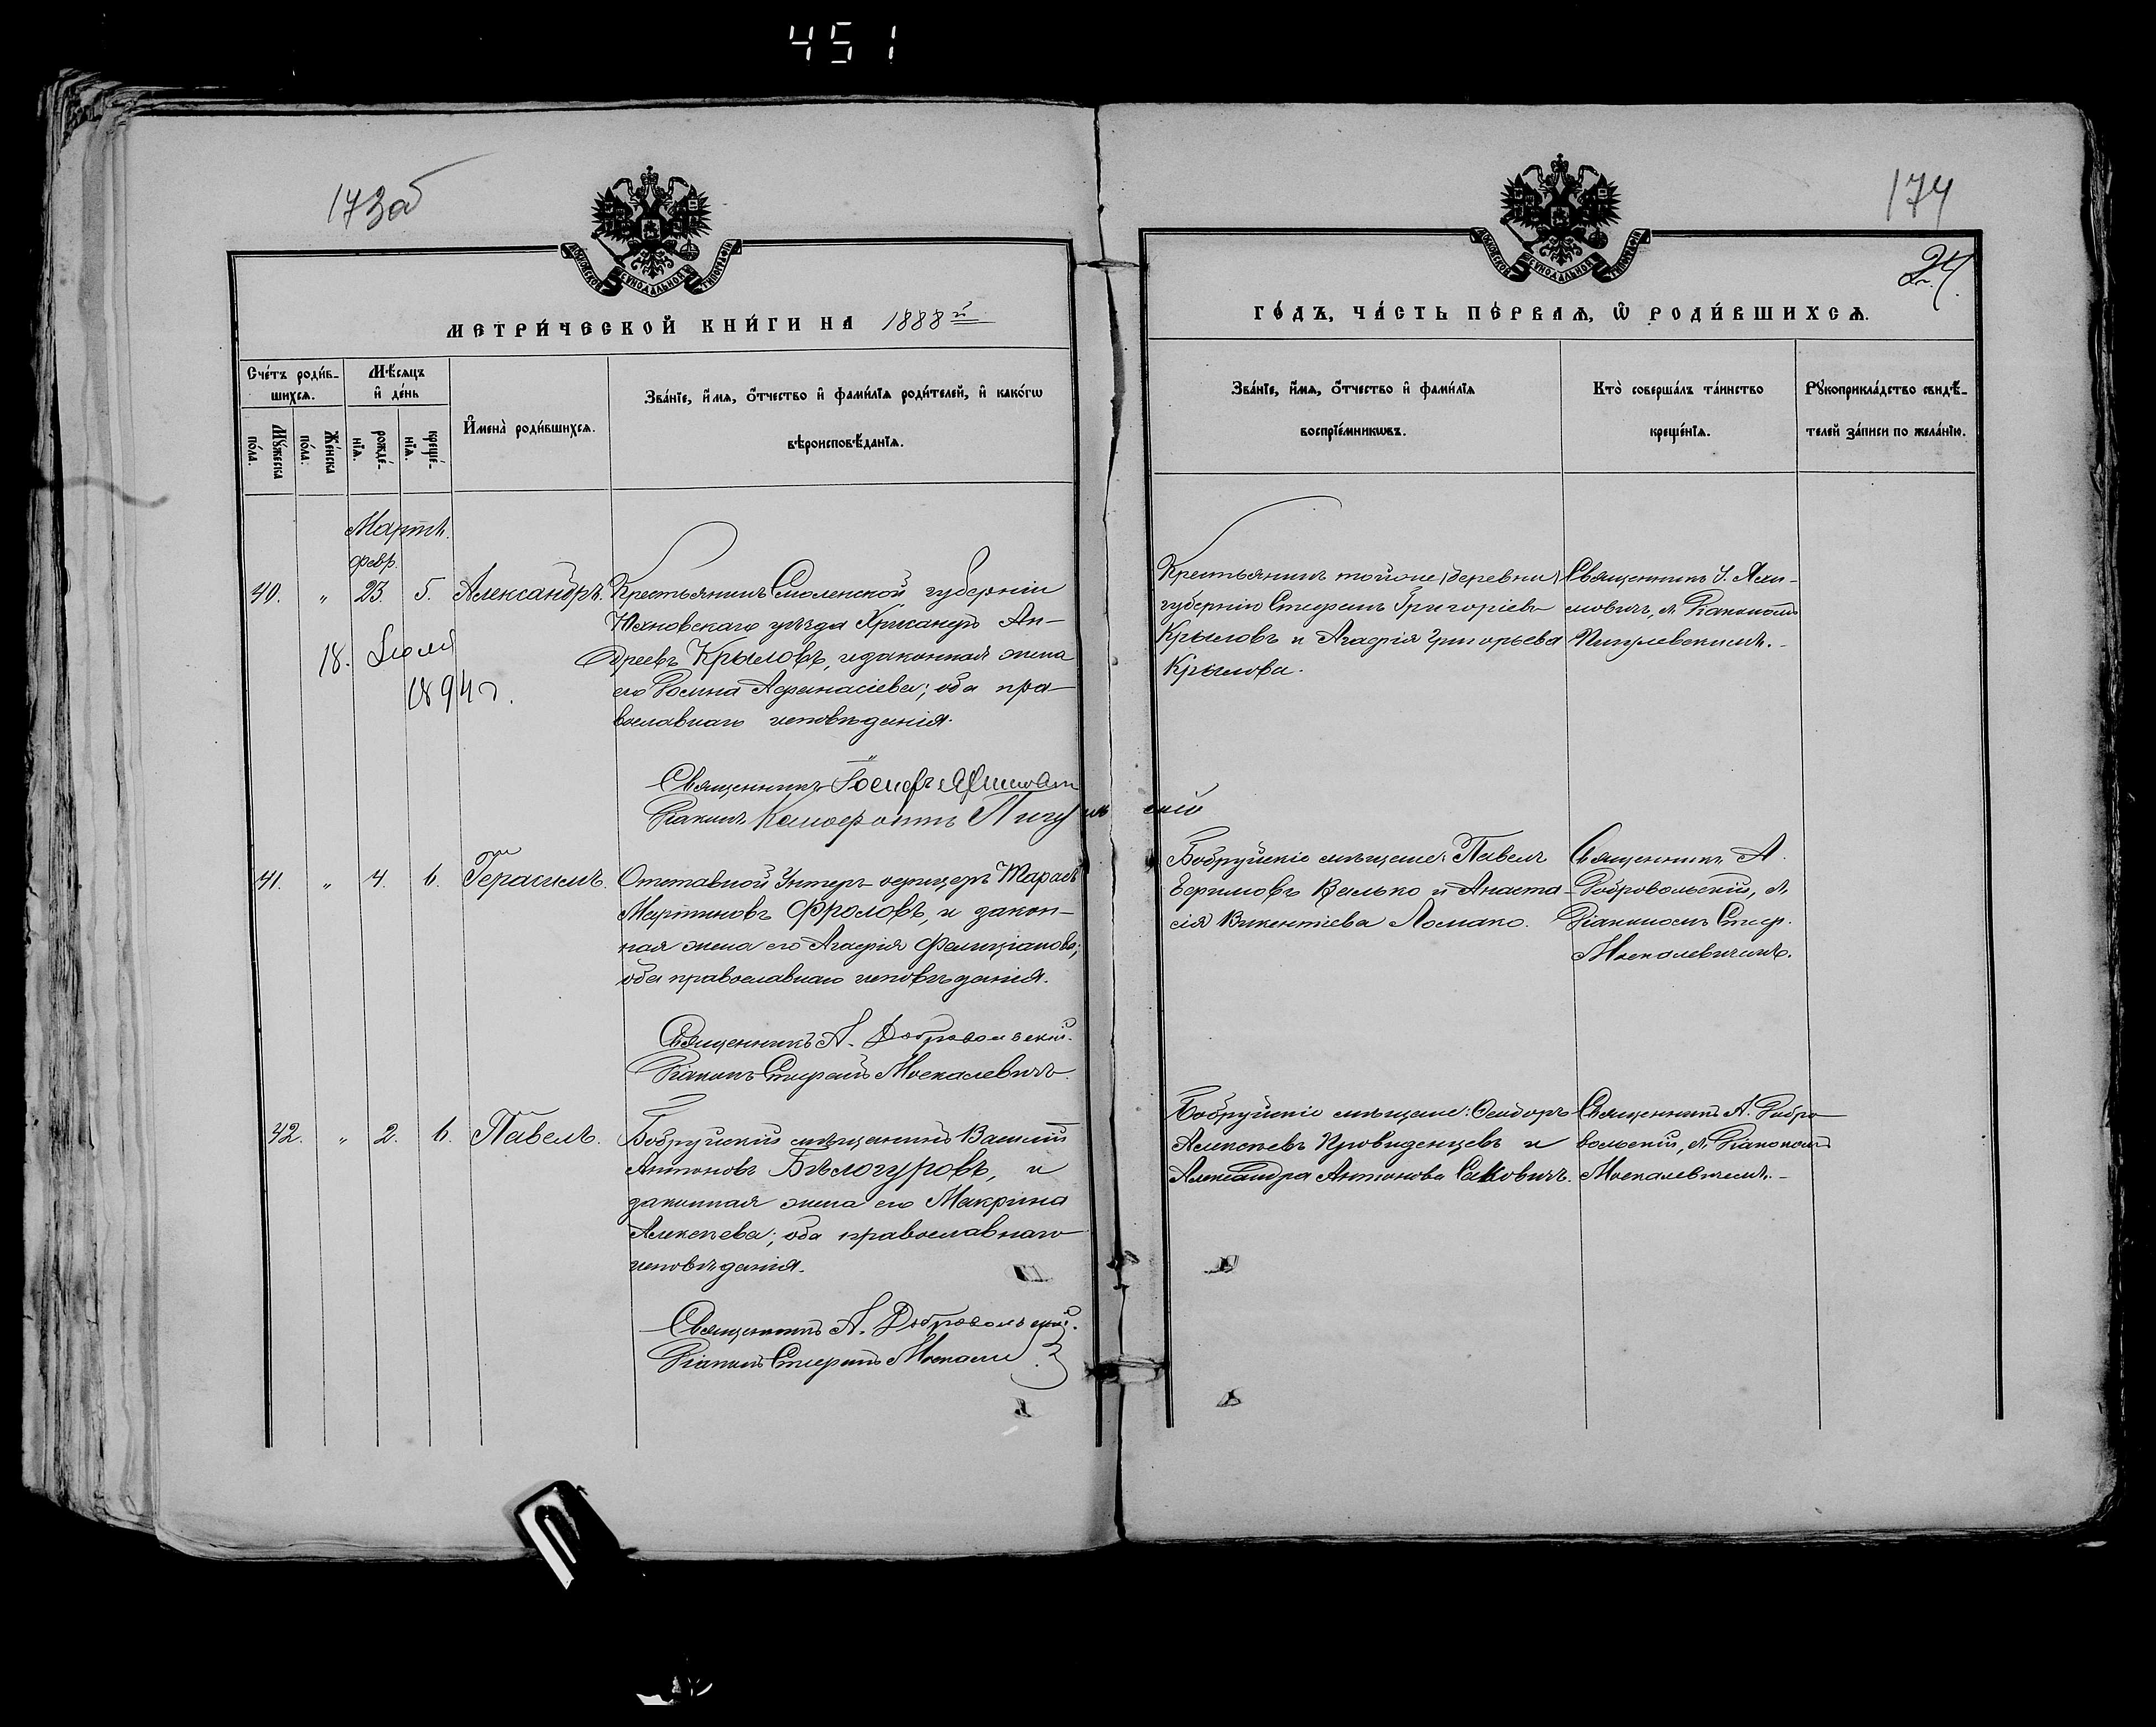 451
173об
174
24.
МОСКОВСКОЙ СѴНОДАЛЬНОЙ ТИПОГРАФІИ
МОСКОВСКОЙ СѴНОДАЛЬНОЙ ТИПОГРАФІИ
МЕТРИ́ЧЕСКОЙ КНИ́ГИ НА 1888й
ГО́ДЪ, ЧА́СТЬ ПЕ́РВАѦ, Ѿ РОДИ́ВШИХСѦ.
Сче́тъ роди́в-
шихсѧ.
Мꙋ́жеска
по́ла.
Же́нска
по́ла.
Мѣ́сѧцъ
и҆ де́нь
рожде́-
нїѧ.
креще́-
нїѧ.
И҆мена̀ роди́вшихсѧ.
Зва́нїе, и҆́мѧ, ѻ҆́тчество и҆ фами́лїѧ роди́телей, и҆ како́гѡ
вѣроисповѣ́данїѧ.
Зва́нїе, и҆́мѧ, ѻ҆́тчество и҆ фами́лїѧ
воспрїе́мникѡвъ.
Кто̀ соверша́лъ та́инство
креще́нїѧ.
Рꙋкоприкла́дство свидѣ́-
телей за́писи по жела́нїю.
Мартъ.
февр.
40. " 23. 5. Александръ.
18. Іюля
1894 г.
Крестьянинъ Смоленской губерніи
Юхновскаго уѣзда Хрисанфъ Ан-
дреевъ Крыловъ, и законная жена
его Аѳанасіева; оба пра-
вославнаго исповѣданія.
Священникъ Іосифъ
Діаконъ
Крестьянинъ тойже (деревни)
губерніи Стефанъ Григоріевъ
Крыловъ и Агафія Григорьева
Крылова.
Священникъ І.
съ Діакономъ
41. " 4. 6. Герасимъ.
Отставной Унтеръ-офицеръ Тарасъ
Мартиновъ Фроловъ, и закон-
ная жена его Агафія Фелиціанова;
оба православнаго исповѣданія.
Священникъ А. Добровольскій.
Діаконъ Стефанъ Москалевичъ.
Бобруйскіе мѣщане: Павелъ
Ефимовъ Велько и Анаста-
сія Викентіева Ломако.
Священникъ А.
Добровольскій, съ
Діакономъ Стеф.
Москалевичемъ.
42. " 2. 6. Павелъ.
Бобруйскій мѣщанинъ Василій
Антоновъ Бѣлогуровъ, и
законная жена его Макрина
Алексѣева; оба православнаго
исповѣданія.
Священникъ А. Добровольскій.
Діаконъ Стефанъ
Бобруйскіе мѣщане: Ѳеодоръ
Алексѣевъ Провиденцевъ и
Александра Антонова Саковичъ.
Священникъ А. Добро-
вольскій, съ Діакономъ
Москалевичемъ.-